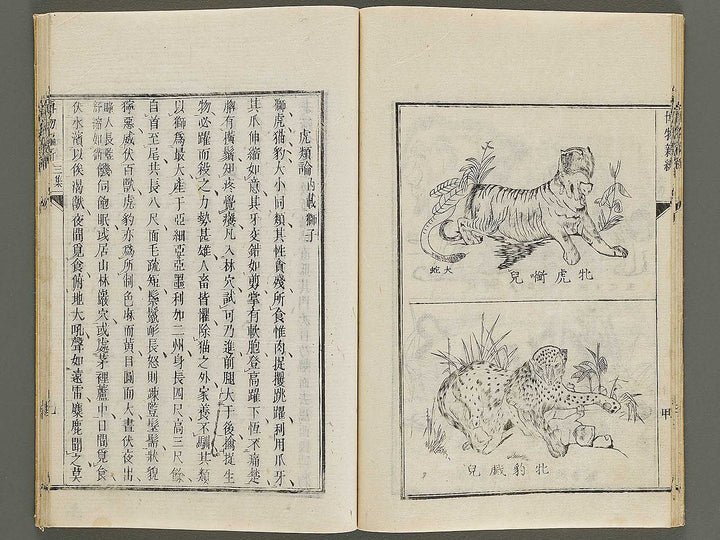 博物新編
牝虎啣兒
犬蛇
牝豹戲兒
甲
虎類論 內載獅子
獅虎猫豹大小同類其性貪殘所食惟肉捉攫跳躍利用爪牙
其爪伸縮如意其牙交錯如剪掌有軟胞登高躍下恆不痛楚
脣有橫鬚知疼覺癢凡入林穴試可乃進前腿大于後擒捉生
物必躍而殺之力勢甚雄人畜皆懼除猫之外家養不馴其類
以獅為最大產于亞細亞亞墨利加二州身長四尺高三尺餘
自首至尾共長八尺面毛疏短鬃鬣髟長怒則竦豎髮鬅狀貌
獰惡威伏百獸虎豹亦為所制色麻而黃目圓而大晝伏夜出
饑伺飽眠或居山林巖穴或處茅裡蘆中日間覓食
伏水濱以俟渴獸夜間覓食俯地大吼聲如遠雷麋鹿聞之莫
三集